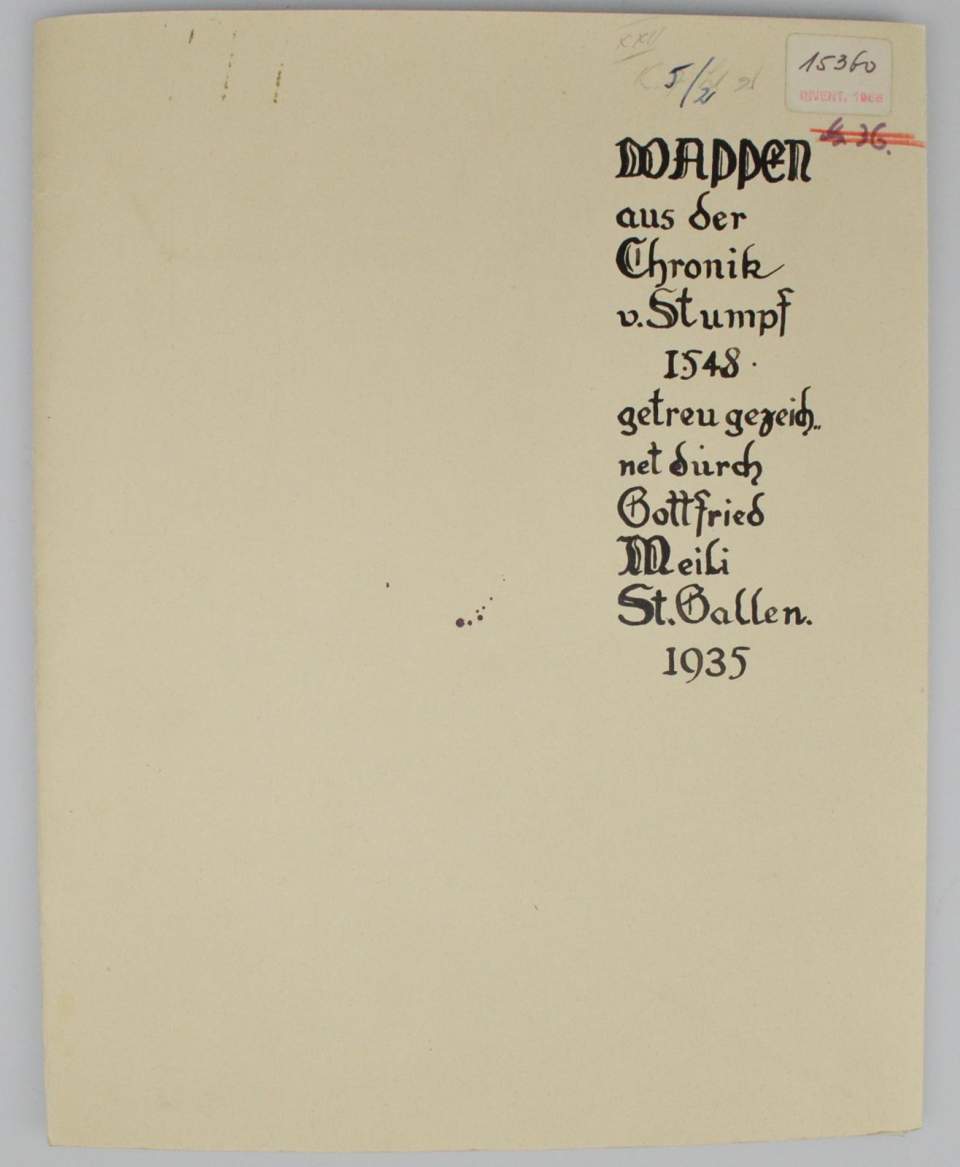 XXII
5/2
15360
INVENT. 1966
WAPPEN
aus der
Chronik
v. Stumpf
1548 ·
getreu gezeich„
net durch
Gottfried
Meili
St. Gallen.
1935